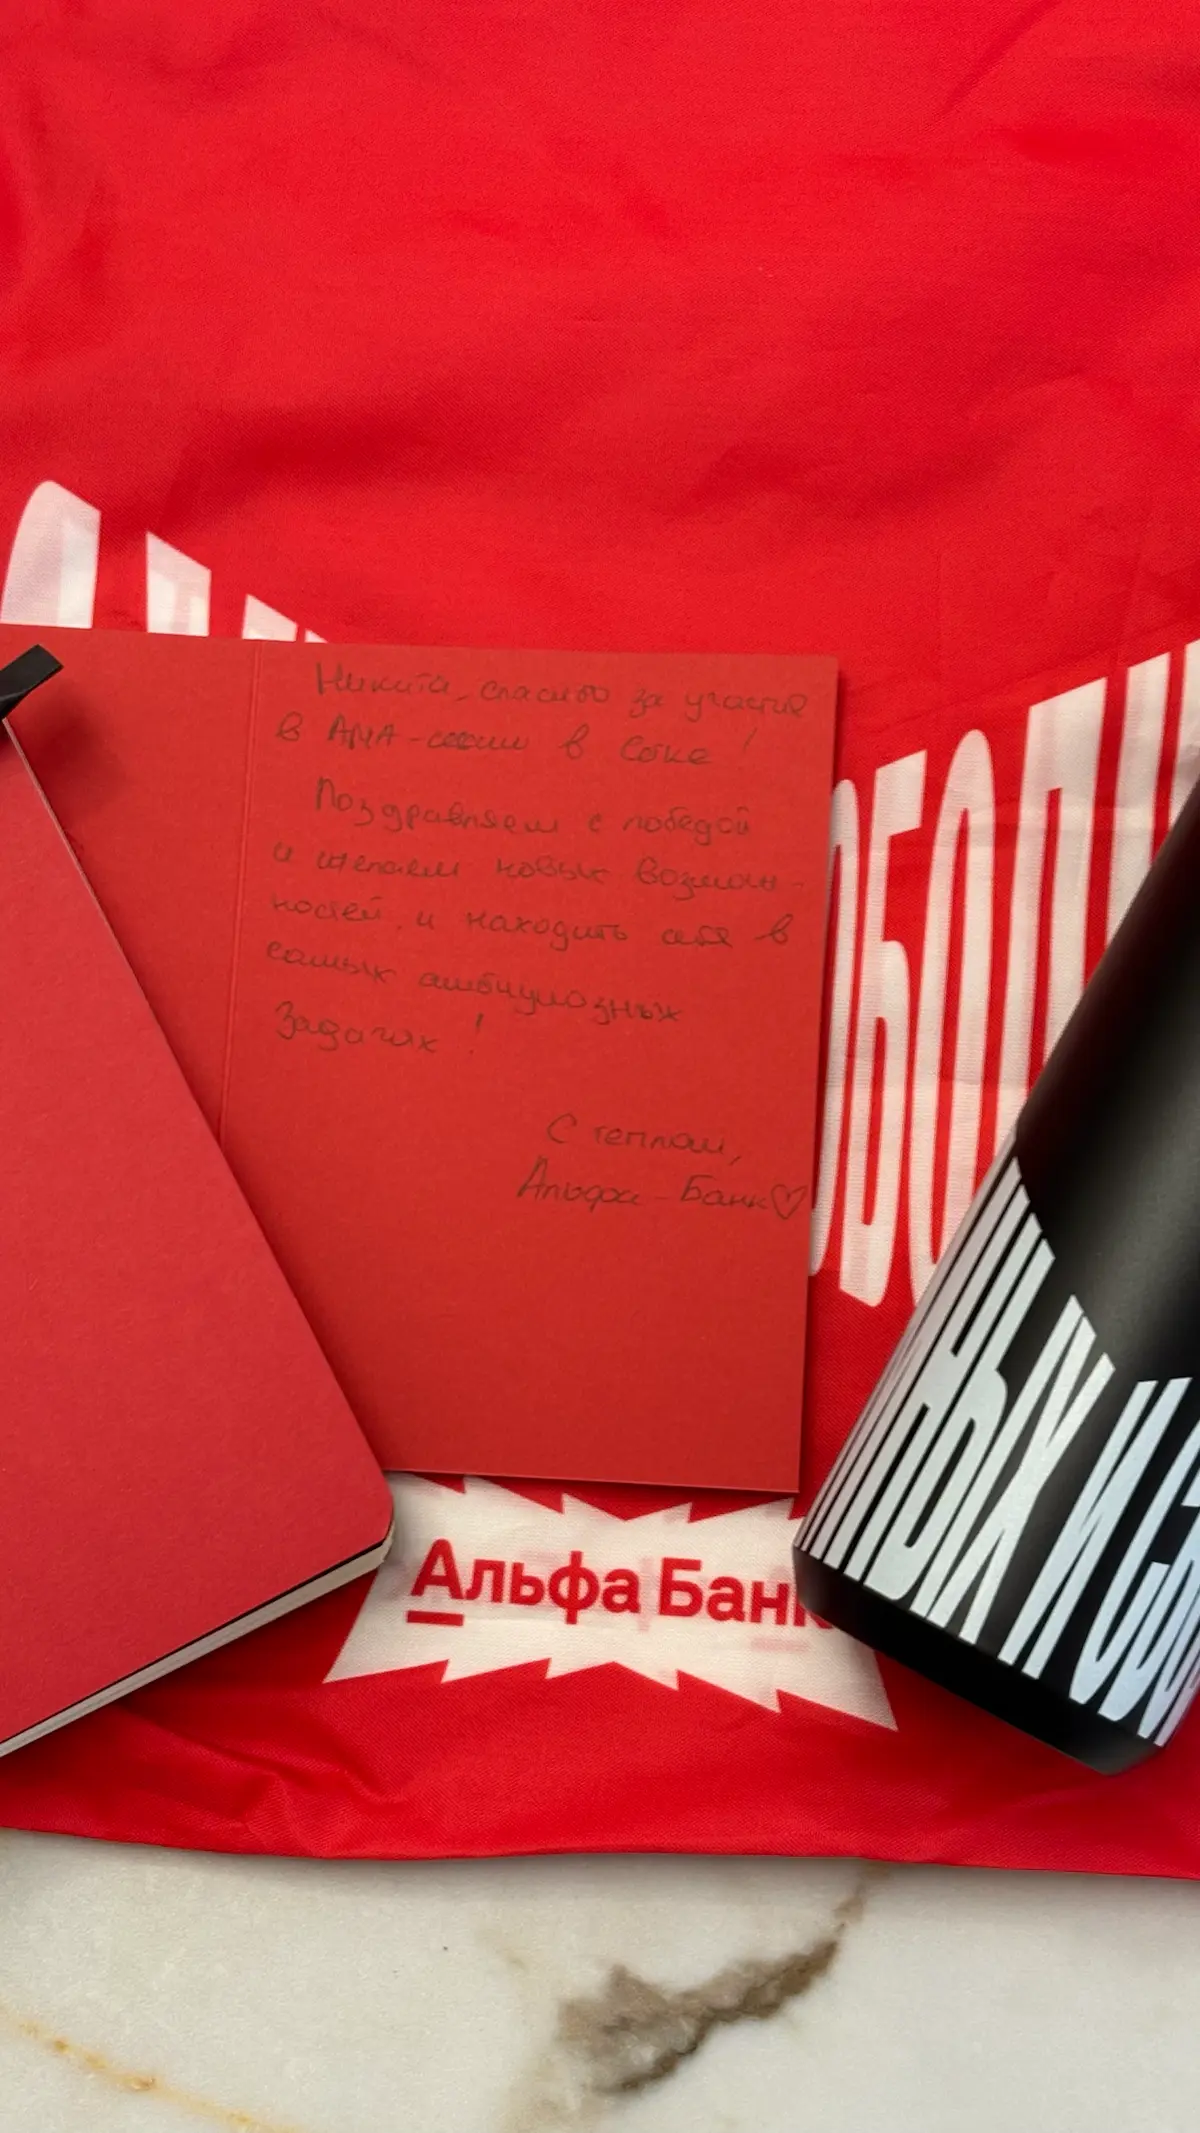 Никита, спасибо за участие
в АМА-сессии в Сетке!
Поздравляем с победой
и желаем новых возмож-
ностей и находить себя в
самых амбициозных
задачах!
С теплом,
Альфа-Банк♡
Альфа Банк
НЫХ И